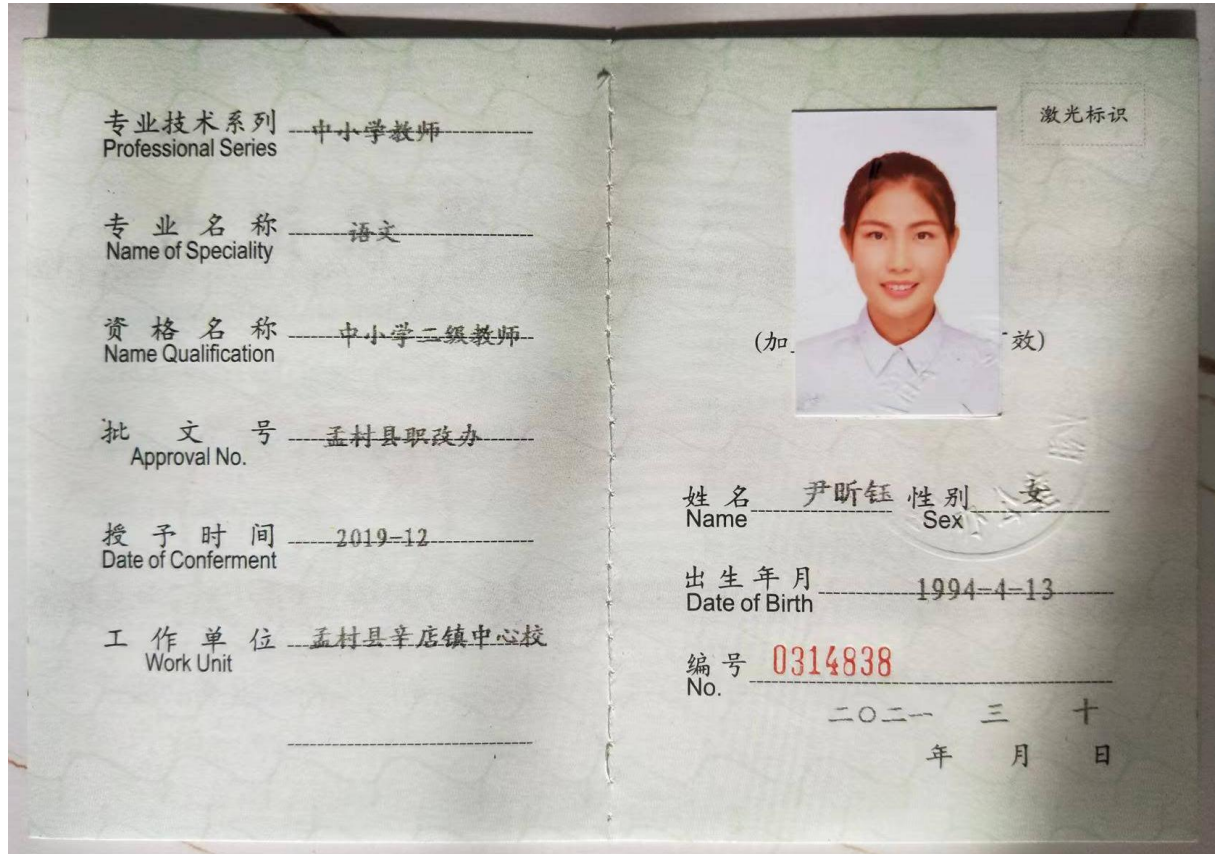 专业技术系列 中小学教师
Professional Series
专业名称 语文
Name of Speciality
资格名称 中小学二级教师
Name Qualification
批文号 孟村县职改办
Approval No.
授予时间 2019-12
Date of Conferment
工作单位 孟村县辛店镇中心校
Work Unit
激光标识
(加 效)
姓名 尹昕钰 性别 女
Name Sex
出生年月 1994-4-13
Date of Birth
编号 0314838
No.
二〇二一 三 十
年 月 日